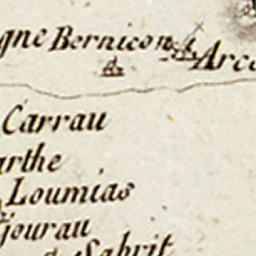 gne Bernicon Arc
Carrau
arthe
Loumias
Jourau
Sabrit